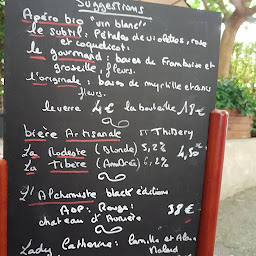 Suggestions
Apéro bio "vin blanc"
le subtil: Pétales de violettes, rose
et coquelicot.
le gourmand: baies de framboise et
groseille, fleurs.
l'originale: baies de myrtille et
fleurs.
le verre 4€ la bouteille 18€
bière Artisanale St Thibery
La Modeste (Blonde) 5,2%
La Tibère (Ambrée) 6,2% 4,50€
L'Alchimiste black éditions
AOP: Rouge: 38€
chateau d'
Lady Catherine: Camille et